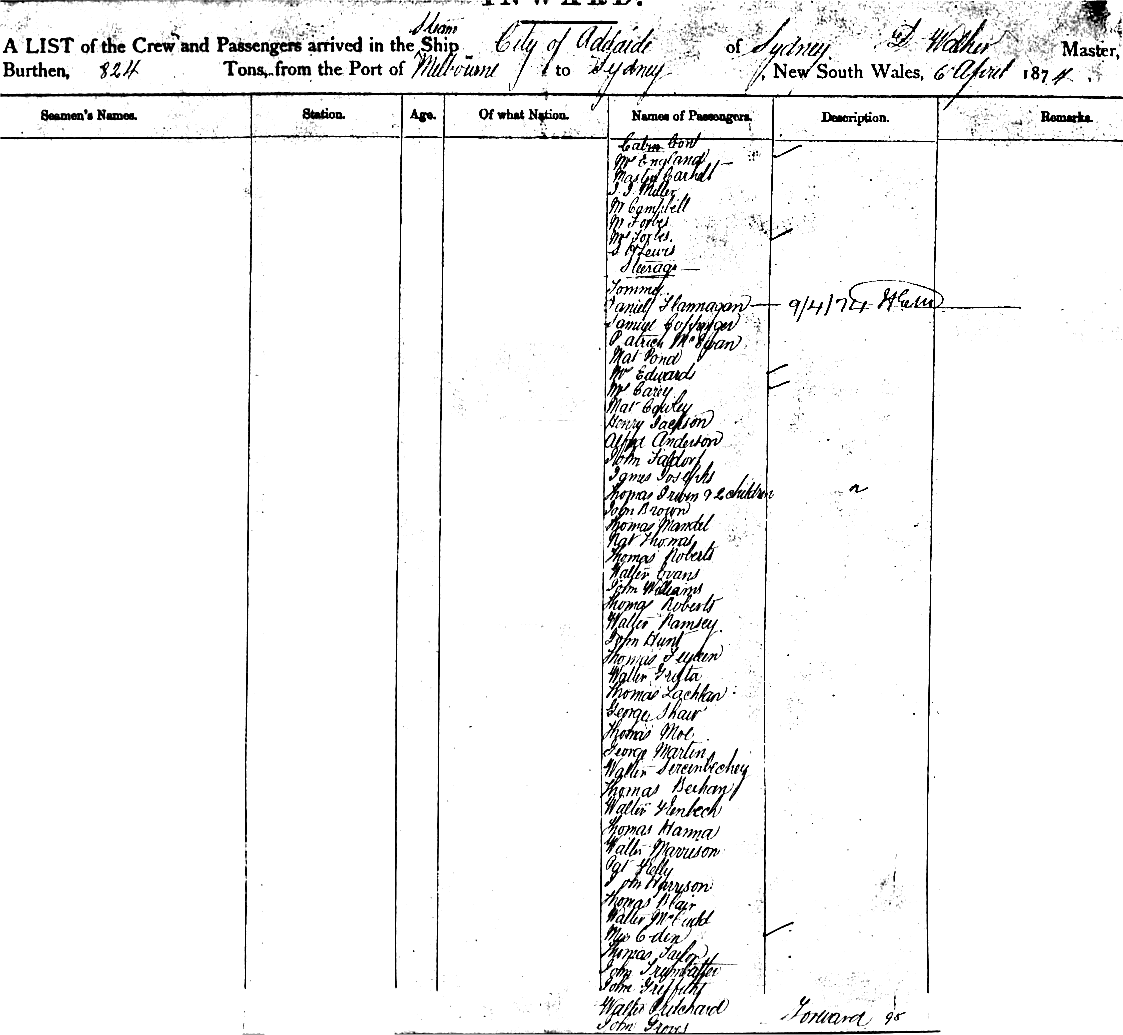 INWARD.
A LIST of the Crew and Passengers arrived in the Steam Ship City of Adelaide of Sydney D Walker Master,
Burthen, 824 Tons, from the Port of Melbourne to Sydney, New South Wales, 6 April 1874.
Seamen's Names. Station. Age. Of what Nation. Names of Passengers. Description. Remarks.
Cabin
Mr England
Master
J. J. Miller
Mr Campbell
Mr Forbes
Mrs Forbes.
S Lewis
Steerage
Tommy
Daniel Flannagan 9/4/74
Samuel
Patrick McEgan
Mat Pond
Mr Edwards
Mr Carey
Mat Cowley
Henry Jackson
Alfred Anderson
John
James Josephs
Thomas Irwin & 2 children
John Brown
Thomas Mandel
Pat Thomas
Thomas Roberts
Walter Evans
John Williams
Thomas Roberts
Walter Ramsey
John Hunt
Thomas
Walter
Thomas Lachlan
George Shaw
Thomas Moe
George Martin
Walter
Thomas Beehan
Walter
Thomas Hanna
Walter Marrison
Pat Kelly
John Harrison
Thomas Blair
Walter
Mrs Eden
Thomas Taylor
John
John Griffiths
Walter Pritchard Forward
John Groves